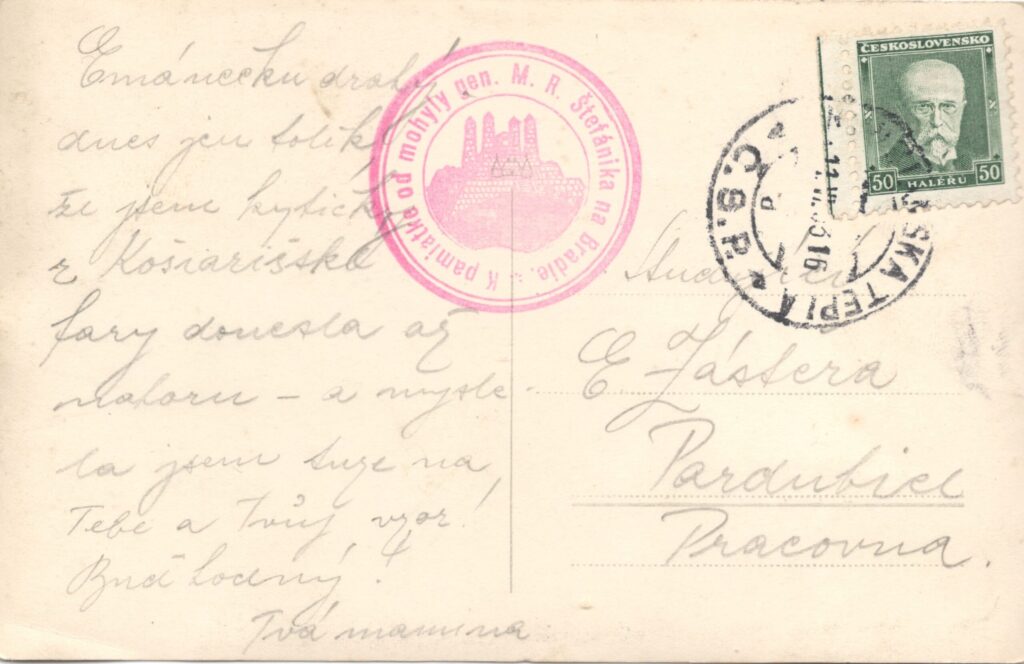 Emánečku drahý
dnes jen tolik
že jsem kytičky
z Košiarišské
fary donesla až
nahoru – a mysle-
la jsem tuze na
Tebe a Tvůj vzor!
Buď hodný!
Tvá mamina
K pamiatke od mohyly gen. M. R. Štefánika na Bradle.
ČESKOSLOVENSKO
50 HALÉRU 50
SKA TEPLÁ
Č.S.P.
16
E Zástera
Pardubice
Pracovna.